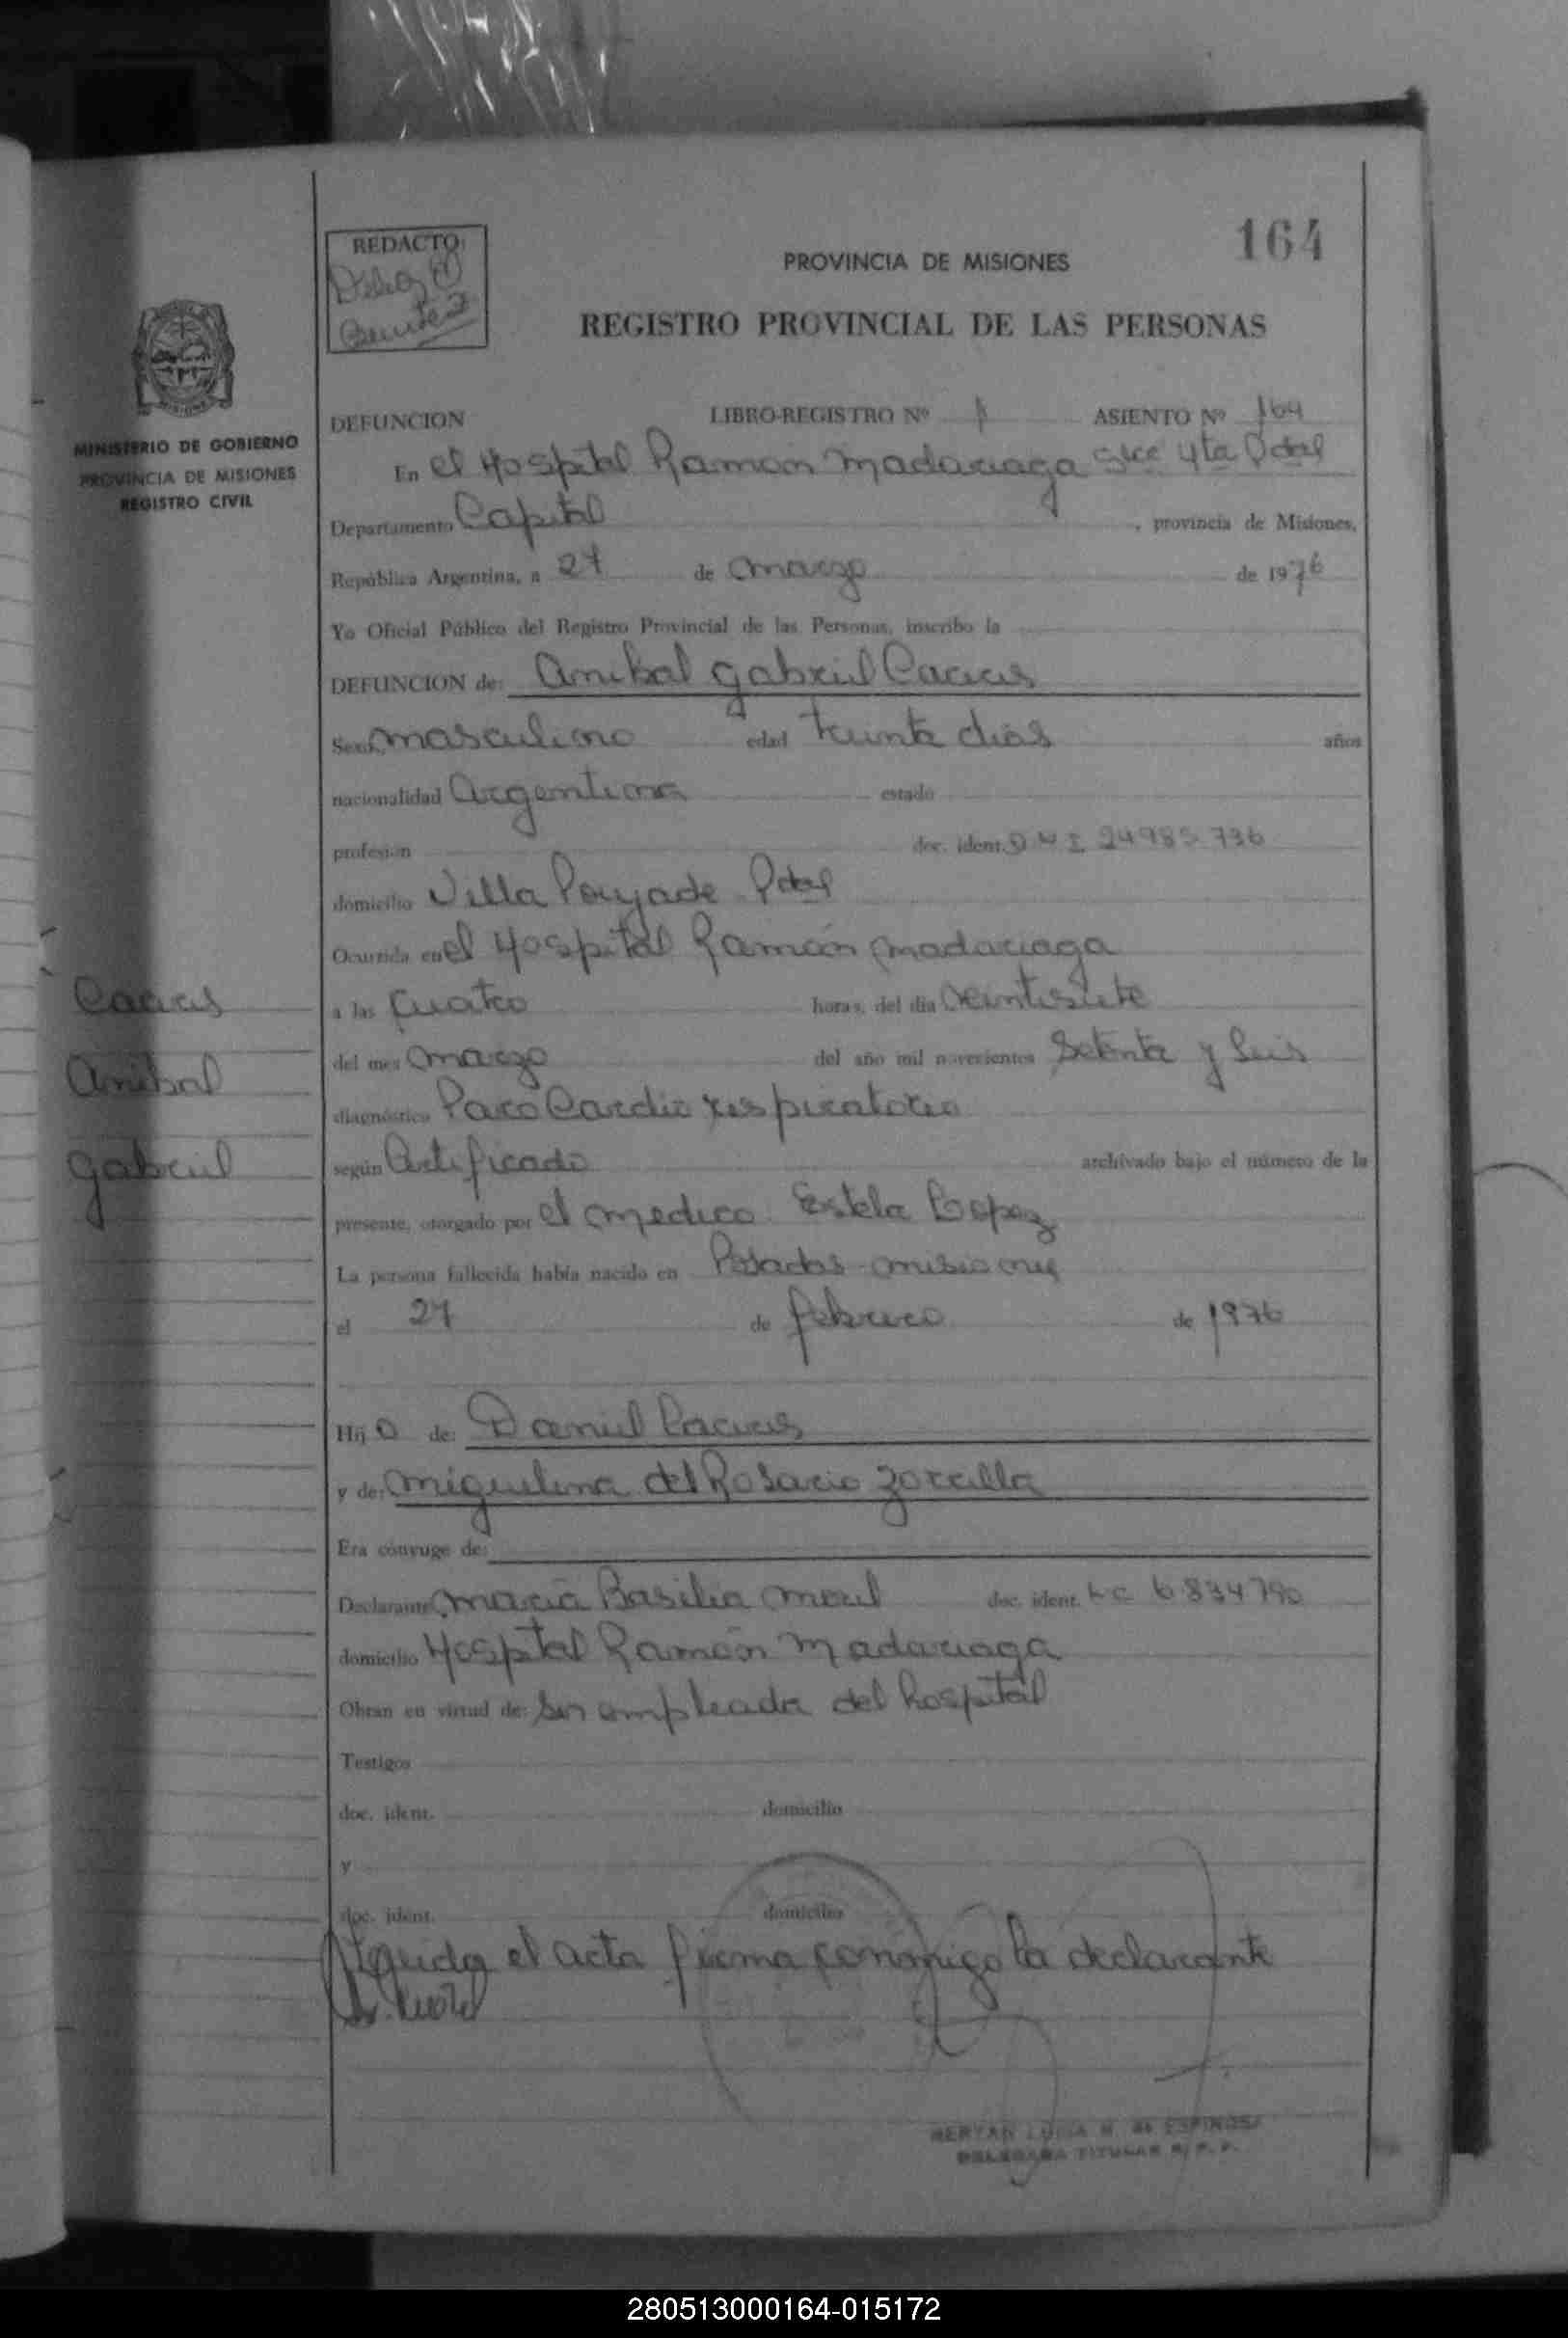 164
REDACTO:
Benitez
PROVINCIA DE MISIONES
REGISTRO PROVINCIAL DE LAS PERSONAS
MINISTERIO DE GOBIERNO
PROVINCIA DE MISIONES
REGISTRO CIVIL
DEFUNCION LIBRO-REGISTRO Nº 1 ASIENTO Nº 164
En el Hospital Ramón Madariaga Scc 4ta Pdas
Departamento Capital, provincia de Misiones,
República Argentina, a 27 de marzo de 1976
Yo Oficial Público del Registro Provincial de las Personas, inscribo la
DEFUNCION de: Anibal Gabriel
Sexo masculino edad treinta dias años
nacionalidad Argentina estado
profesión doc. ident. D N I 24985 736
domicilio Villa Poujade Pdas
Ocurrida en el Hospital Ramón Madariaga
a las cuatro horas, del día veintisiete
del mes marzo del año mil novecientos setenta y seis
diagnóstico Paro Cardio respiratorio
según Certificado archivado bajo el número de la
presente, otorgado por el medico Estela Lopez
La persona fallecida había nacido en Posadas - misiones
el 27 de febrero de 1976
Hijo de: Daniel
y de: Miguelina del Rosario Zorrilla
Era cónyuge de:
Declarante Maria Basilia Morel doc. ident. L C 6834790
domicilio Hospital Ramón Madariaga
Obran en virtud de: ser empleada del hospital
Testigos
doc. ident. domicilio
y
doc. ident. domicilio
Leida el acta firma conmigo la declarante
Anibal
Gabriel
LUISA M. de ESPINOSA
DELEGADA TITULAR R. P. P.
280513000164-015172